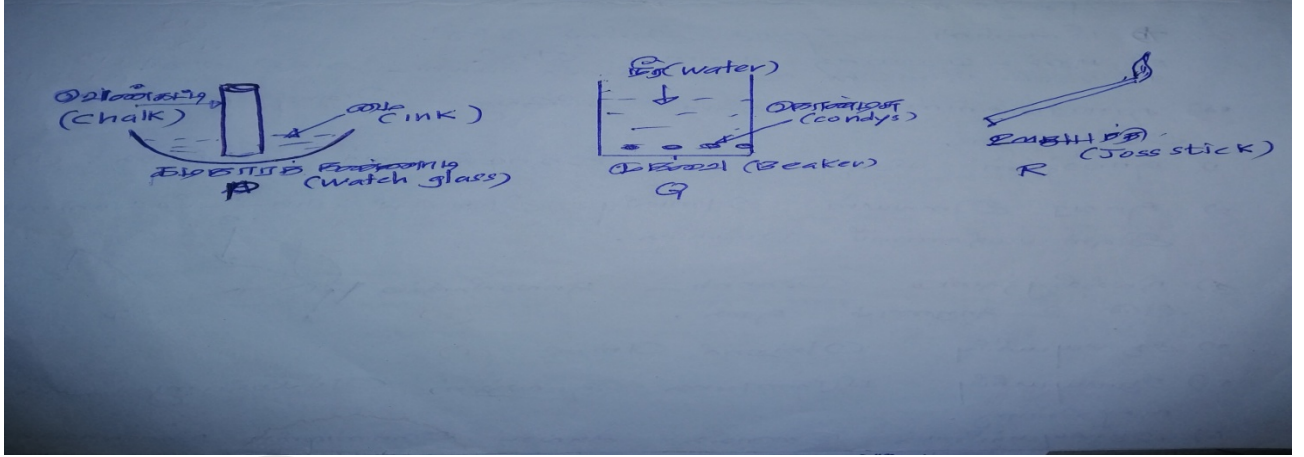 வெண்கட்டி
(Chalk)
மை
(ink)
கடிகாரக் கண்ணாடி
(Watch glass)
P
நீர் (water)
(condys)
முகவை (Beaker)
Q
ஊதுபத்தி
(Joss stick)
R